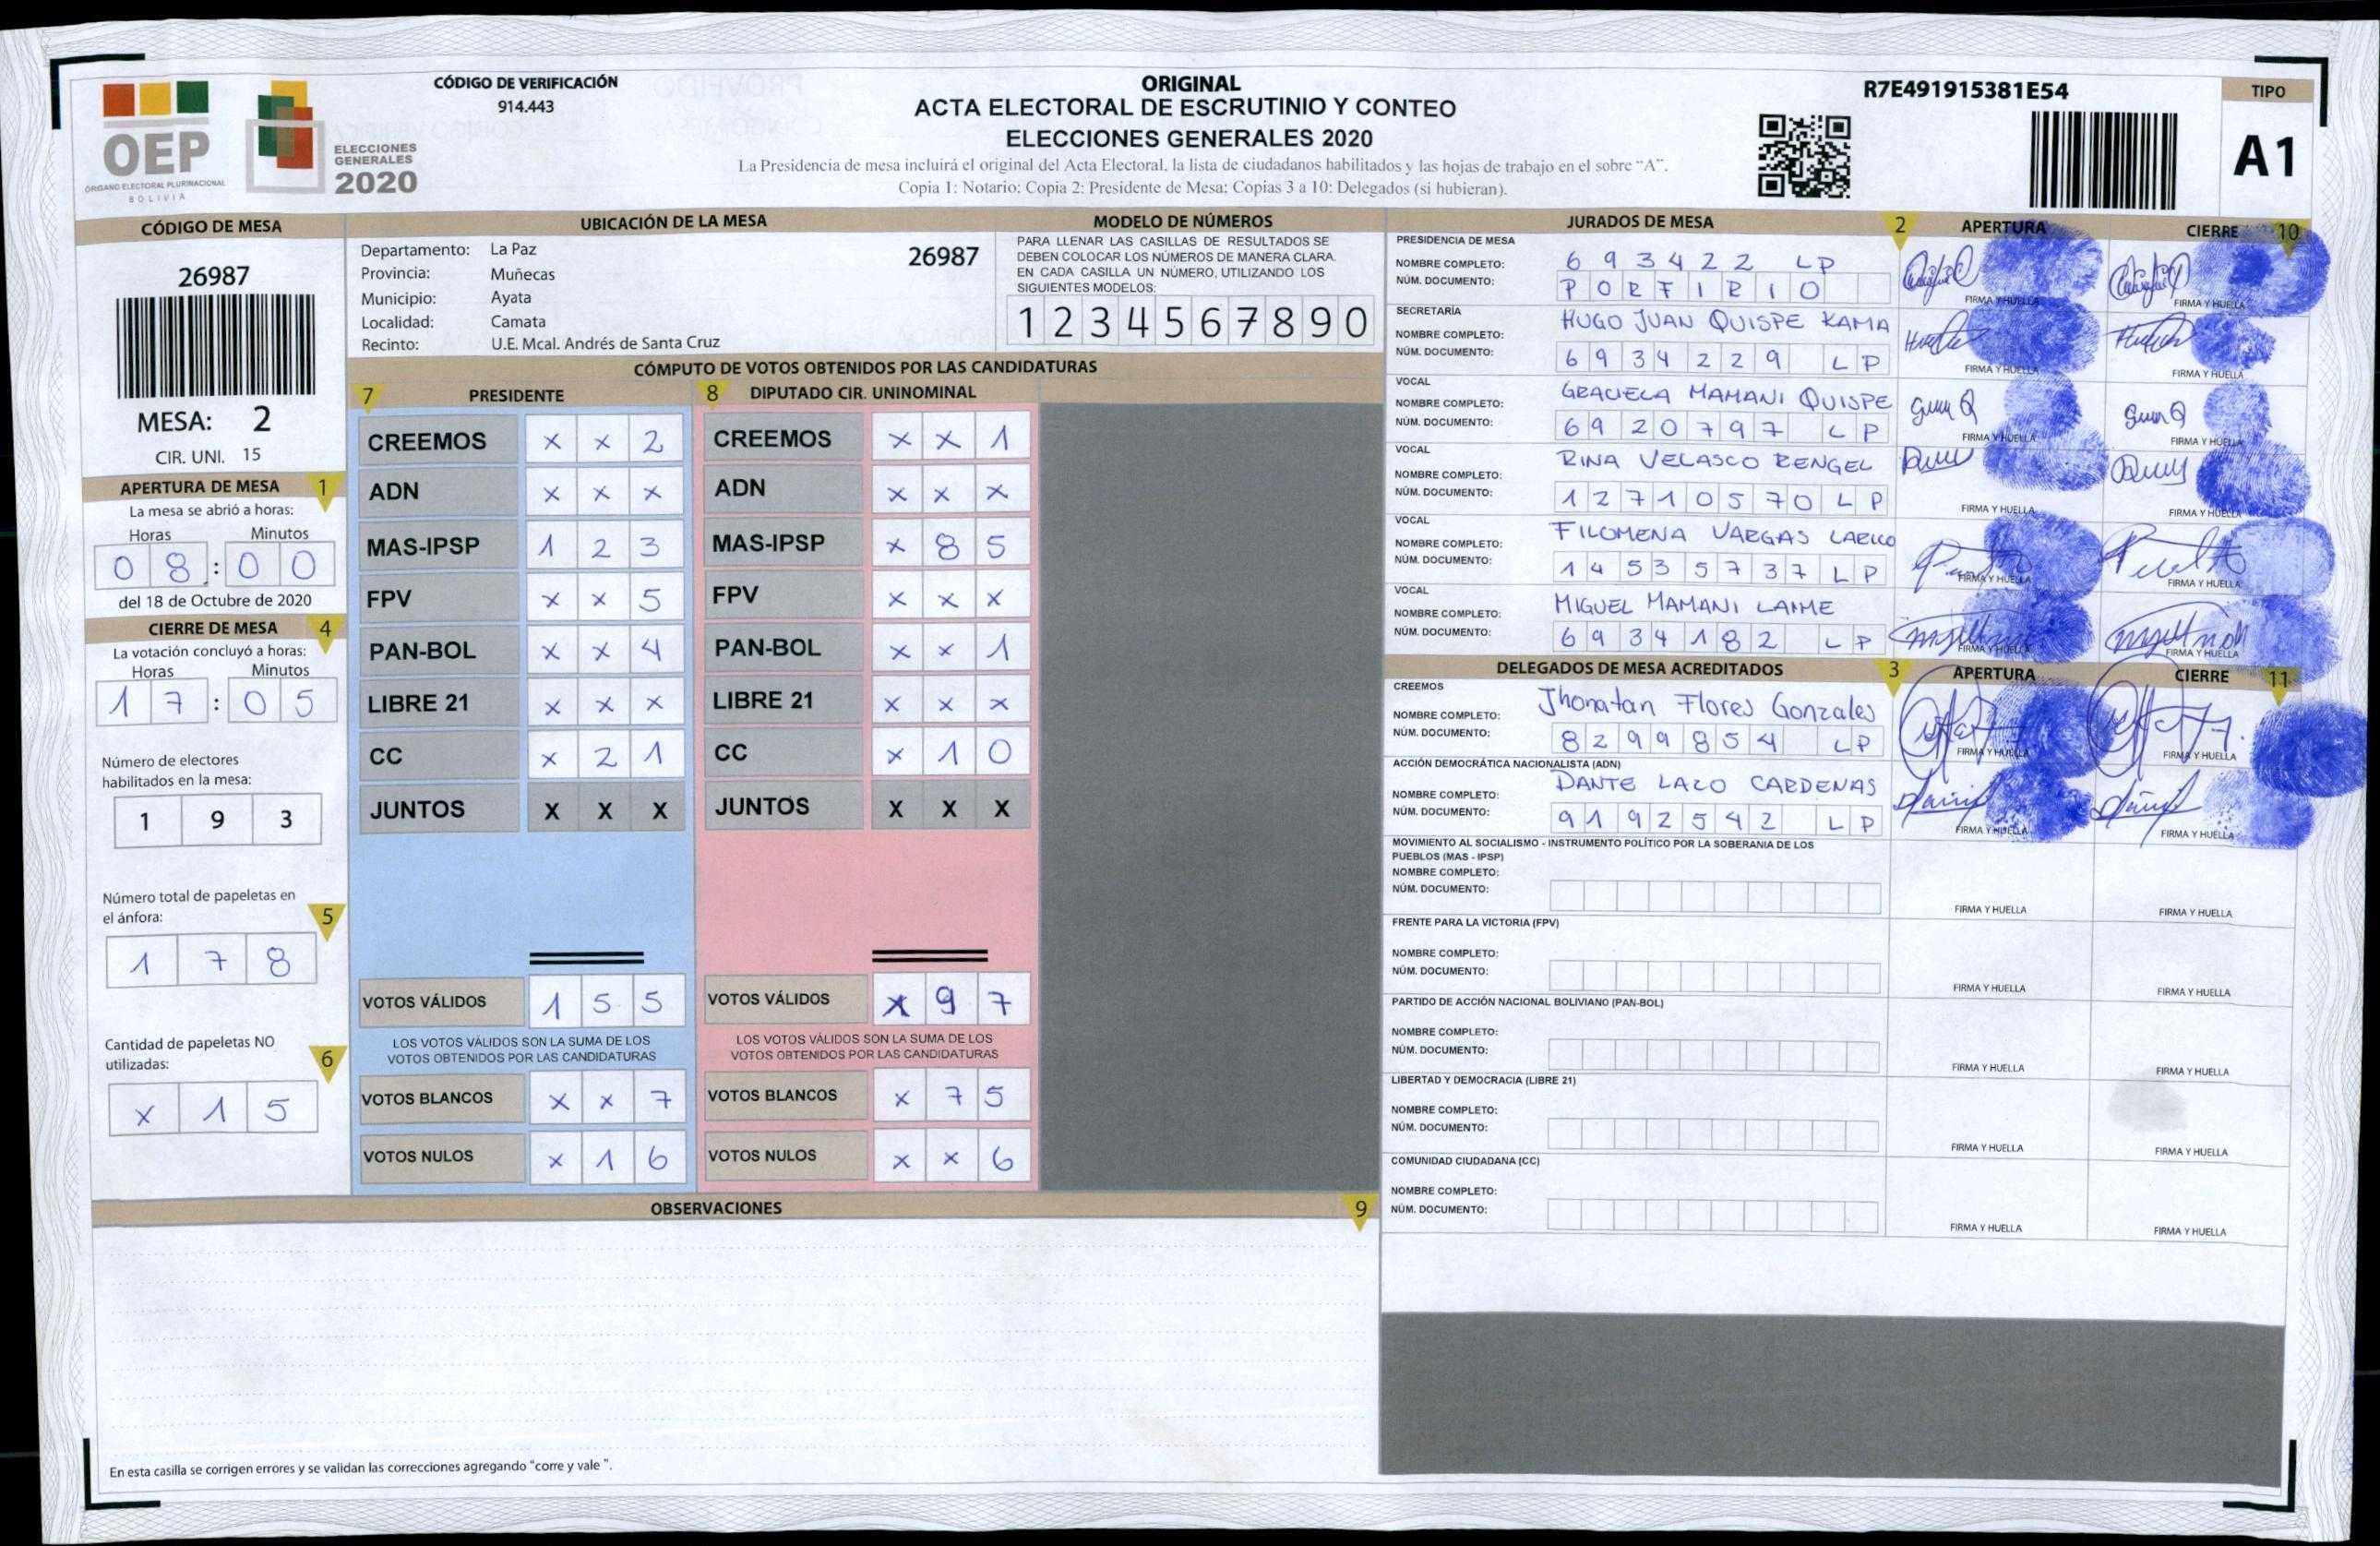 OEP
ÓRGANO ELECTORAL PLURINACIONAL
BOLIVIA
ELECCIONES
GENERALES
2020
CÓDIGO DE VERIFICACIÓN
914.443
ORIGINAL
ACTA ELECTORAL DE ESCRUTINIO Y CONTEO
ELECCIONES GENERALES 2020
La Presidencia de mesa incluirá el original del Acta Electoral, la lista de ciudadanos habilitados y las hojas de trabajo en el sobre "A".
Copia 1: Notario; Copia 2: Presidente de Mesa; Copias 3 a 10: Delegados (si hubieran).
R7E491915381E54
TIPO
A1
CÓDIGO DE MESA
26987
MESA: 2
CIR. UNI. 15
APERTURA DE MESA 1
La mesa se abrió a horas:
Horas Minutos
0 8 : 0 0
del 18 de Octubre de 2020
CIERRE DE MESA 4
La votación concluyó a horas:
Horas Minutos
1 7 : 0 5
Número de electores
habilitados en la mesa:
1 9 3
Número total de papeletas en
el ánfora: 5
1 7 8
Cantidad de papeletas NO
utilizadas: 6
x 1 5
UBICACIÓN DE LA MESA
Departamento: La Paz 26987
Provincia: Muñecas
Municipio: Ayata
Localidad: Camata
Recinto: U.E. Mcal. Andrés de Santa Cruz
MODELO DE NÚMEROS
PARA LLENAR LAS CASILLAS DE RESULTADOS SE
DEBEN COLOCAR LOS NÚMEROS DE MANERA CLARA.
EN CADA CASILLA UN NÚMERO, UTILIZANDO LOS
SIGUIENTES MODELOS:
1 2 3 4 5 6 7 8 9 0
CÓMPUTO DE VOTOS OBTENIDOS POR LAS CANDIDATURAS
7 PRESIDENTE
CREEMOS x x 2
ADN x x x
MAS-IPSP 1 2 3
FPV x x 5
PAN-BOL x x 4
LIBRE 21 x x x
CC x 2 1
JUNTOS X X X
VOTOS VÁLIDOS 1 5 5
LOS VOTOS VÁLIDOS SON LA SUMA DE LOS
VOTOS OBTENIDOS POR LAS CANDIDATURAS
VOTOS BLANCOS x x 7
VOTOS NULOS x 1 6
8 DIPUTADO CIR. UNINOMINAL
CREEMOS x x 1
ADN x x x
MAS-IPSP x 8 5
FPV x x x
PAN-BOL x x 1
LIBRE 21 x x x
CC x 1 0
JUNTOS X X X
VOTOS VÁLIDOS x 9 7
LOS VOTOS VÁLIDOS SON LA SUMA DE LOS
VOTOS OBTENIDOS POR LAS CANDIDATURAS
VOTOS BLANCOS x 7 5
VOTOS NULOS x x 6
OBSERVACIONES 9
En esta casilla se corrigen errores y se validan las correcciones agregando "corre y vale ".
JURADOS DE MESA 2 APERTURA CIERRE 10
PRESIDENCIA DE MESA
NOMBRE COMPLETO: 6 9 3 4 2 2 LP
NÚM. DOCUMENTO: P O R F I R I O
FIRMA Y HUELLA FIRMA Y HUELLA
SECRETARÍA
NOMBRE COMPLETO: HUGO JUAN QUISPE KAMA
NÚM. DOCUMENTO: 6 9 3 4 2 2 9 L P
FIRMA Y HUELLA FIRMA Y HUELLA
VOCAL
NOMBRE COMPLETO: GRACIELA MAMANI QUISPE
NÚM. DOCUMENTO: 6 9 2 0 7 9 7 L P
FIRMA Y HUELLA FIRMA Y HUELLA
VOCAL
NOMBRE COMPLETO: RINA VELASCO RENGEL
NÚM. DOCUMENTO: 1 2 7 1 0 5 7 0 L P
FIRMA Y HUELLA FIRMA Y HUELLA
VOCAL
NOMBRE COMPLETO: FILOMENA VARGAS LARICO
NÚM. DOCUMENTO: 1 4 5 3 5 7 3 7 L P
FIRMA Y HUELLA FIRMA Y HUELLA
VOCAL
NOMBRE COMPLETO: MIGUEL MAMANI LAIME
NÚM. DOCUMENTO: 6 9 3 4 1 8 2 L P
FIRMA Y HUELLA FIRMA Y HUELLA
DELEGADOS DE MESA ACREDITADOS 3 APERTURA CIERRE 11
CREEMOS
NOMBRE COMPLETO: Jhonatan Flores Gonzales
NÚM. DOCUMENTO: 8 2 9 9 8 5 4 L P
FIRMA Y HUELLA FIRMA Y HUELLA
ACCIÓN DEMOCRÁTICA NACIONALISTA (ADN)
NOMBRE COMPLETO: DANTE LAZO CARDENAS
NÚM. DOCUMENTO: 9 1 9 2 5 4 2 L P
FIRMA Y HUELLA FIRMA Y HUELLA
MOVIMIENTO AL SOCIALISMO - INSTRUMENTO POLÍTICO POR LA SOBERANIA DE LOS
PUEBLOS (MAS - IPSP)
NOMBRE COMPLETO:
NÚM. DOCUMENTO:
FIRMA Y HUELLA FIRMA Y HUELLA
FRENTE PARA LA VICTORIA (FPV)
NOMBRE COMPLETO:
NÚM. DOCUMENTO:
FIRMA Y HUELLA FIRMA Y HUELLA
PARTIDO DE ACCIÓN NACIONAL BOLIVIANO (PAN-BOL)
NOMBRE COMPLETO:
NÚM. DOCUMENTO:
FIRMA Y HUELLA FIRMA Y HUELLA
LIBERTAD Y DEMOCRACIA (LIBRE 21)
NOMBRE COMPLETO:
NÚM. DOCUMENTO:
FIRMA Y HUELLA FIRMA Y HUELLA
COMUNIDAD CIUDADANA (CC)
NOMBRE COMPLETO:
NÚM. DOCUMENTO:
FIRMA Y HUELLA FIRMA Y HUELLA